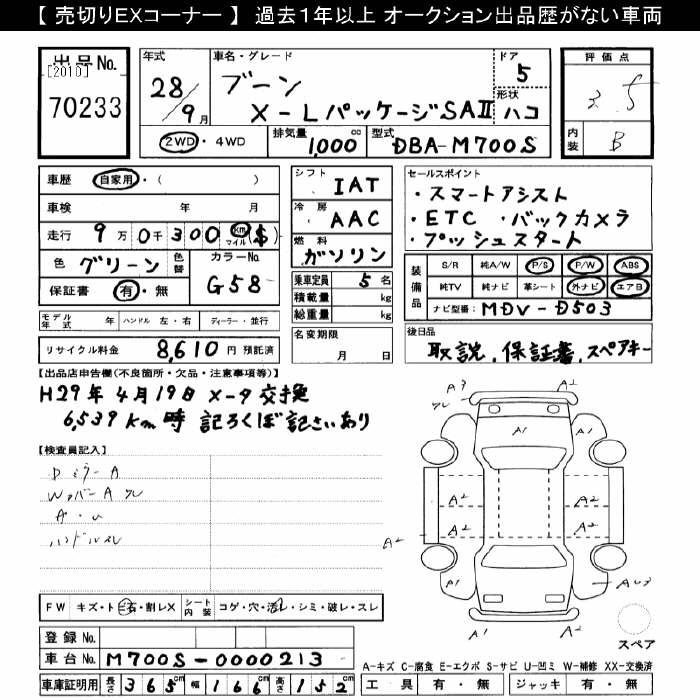 【 売切りEXコーナー 】 過去1年以上 オークション出品歴がない車両
出品No.
[2010]
70233
年式
28/9月
車名・グレード
ブーン
X-LパッケージSAⅡ
ドア
5
形状
ハコ
2WD・4WD
排気量 1,000 cc
型式 DBA-M700S
評価点
3.5
内装 B
車歴 自家用・( )
車検 年 月
走行 9万0千300 km マイル ($)
色 グリーン 色替
カラーNo. G58
保証書 有・無
モデル年式 年 ハンドル 左・右 ディーラー・並行
リサイクル料金 8,610 円 預託済
シフト IAT
冷房 AAC
燃料 ガソリン
乗車定員 5 名
積載量 kg
総重量 kg
名変期限
月 日
セールスポイント
・スマートアシスト
・ETC ・バックカメラ
・プッシュスタート
装備品
S/R 純A/W P/S P/W ABS
純TV 純ナビ 革シート 外ナビ エアB
ナビ型番: MDV-D503
後日品
取説、保証書、スペアキー
【出品店申告欄(不良箇所・欠品・注意事項等)】
H29年4月19日 メータ交換
6,539km時 記ろくぼ記さいあり
【検査員記入】
Dミラー A
ハンドルスレ
A3
A2
A1
A2
A2
A2
A2
A2
A1
A1
A2
スペア
FW キズ・トビ石・割レX
シート内装 コゲ・穴・汚レ・シミ・破レ・スレ
登録No.
車台No. M700S-0000213
車庫証明用 長さ 365cm 幅 166cm 高さ 152cm
A-キズ C-腐食 E-エクボ S-サビ U-凹ミ W-補修 XX-交換済
工具 有・無 ジャッキ 有・無